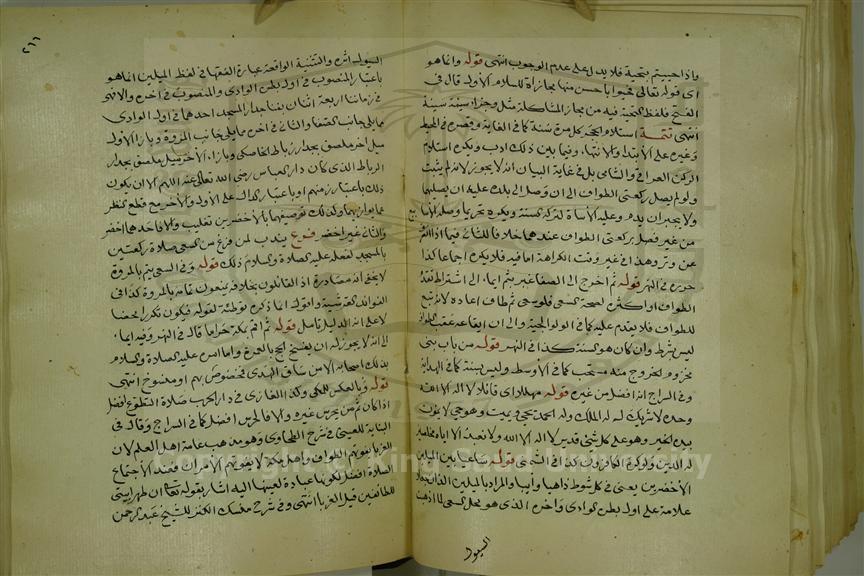 واذا حييتم بتحية فلا يدل على عدم الوجوب انتهى قوله وانما هو
اى قوله تعالى فحيوا باحسن منها مجازاة للسلام الاول قال فى
الفتح فلفظ التحية فيه من مجاز المشاكلة مثل وجزاء سيئة سيئة
انتهى تتمة استلام الحجر كل مرة سنة كما فى الغاية وقصره فى المحيط
وغيره على الابتداء والانتهاء وفيما بين ذلك ادب ويكره استلام
الركن العراقى والشامى بل فى غاية البيان انه لا يجوز لانه لم يثبت
ولو لم يصل ركعتى الطواف الى ان وصل الى بلده عليه ان يصليها
ولا يجبران بدم وعليه الاساة لتركه السنة ويكره تحريما وصله الاسابيع
من غير فصل بركعتى الطواف عندهما خلافا للثانى فيما اذا
عن وتر وهذا فى غير وقت الكراهة اما فيه فلا يكره اجماعا كذا
حرره فى النهر قوله ثم اخرج الى الصفا غير بثم ايما الى اشتراط تقدم
الطواف او اكثره لصحة السعى فلو سعى ثم طاف اعاده لانه تبع
للطواف فلا يتقدم عليه كما فى الولوالجية والى ان ايقاعه عقب الطواف
ليس شرط وان كان هو السنة كذا فى النهر قوله من باب بنى
مخزوم الخروج منه مستحب كما فى الاوسط وليس سنة كما فى الهداية
وفى السراج انه افضل من غيره قوله مهللا اى قائلا لا اله الا الله
وحده لا شريك له له الملك وله الحمد يحيى ويميت وهو حى لا يموت
بيده الخير وهو على كل شئ قدير لا اله الا الله ولا نعبد الا اياه مخلصين
له الدين ولو كره الكافرون كذا فى قوله ساعيا بين الميلين
الاخضرين يعنى فى كل شوط ذاهبا وآيبا والمراد بالميلين اللذان
علامة على اول بطن الوادى وآخره الذى هو محل السعى لما اذهبت
السيول

٢٦٦
السيول اثره والتثنية الواقعة عبارة الفقها فى لفظ الميلين انما هو
باعتبار المنصوب فى اول بطن الوادى والمنصوب فى اخره والا فهى
فى زماننا اربعة اثنان بفناء جدار المسجد احدهما فى اول الوادى
مما يلى جانب الصفا والثانى فى اخره مما يلى جانب المروة وبازا الاول
ميل اخر ملصق بجدار رباط وبازاء الآخر ميل ملصق بجدار
الرباط الذى كان دار العباس رضى الله تعالى عنه اللهم الا ان يكون
ذلك باعتبار زمنهم او باعتبار على الاول والآخر مع قطع النظر
عما يوازيهما وكذلك توصيفهما بالاخضرين تغليب والا فاحدهما اخضر
والثانى غير اخضر فرع يندب لمن فرغ من السعى صلاة ركعتين
بالمسجد لفعله عليه الصلاة والسلام ذلك قوله وفى السعى يتم بالمروة
لا يخفى انه مصادرة اذ القائلون بخلافه يمنعون تمامه بالمروة كذا فى
الفوائد واقول انما ذكره توطئة لقوله فيكون تكرارا محضا
لا على انه الدليل تأمل قوله ثم اقم بمكة حراما قال فى النهر وفيه ايماء
الى انه لا يجوز له ان يفسخ الحج بالعمرة واما امره عليه الصلاة والسلام
بذلك اصحابه الا من ساق الهدى فمخصوص بهم او منسوخ انتهى
قوله وبالعكس للمكى وكذا الغازى فى دار الحرب صلاة التطوع افضل
اذا كان ثم من يحرس غيره والا فالحرس افضل كما فى السراج وقال فى
البناية للعينى فى شرح الطحاوى وهو مذهب عامة اهل العلم لان
الغربا يفوتهم الطواف واهل مكة لا يفوتهم الامران فعند الاجتماع
الصلاة افضل لكونها عبادة لعينها اليه اشار بقوله تعالى ان طهرا بيتى
للطائفين قيل الغربا انتهى وفى شرح منسك الكنز للشيخ عبد الرحمن

Copyright © King Saud University